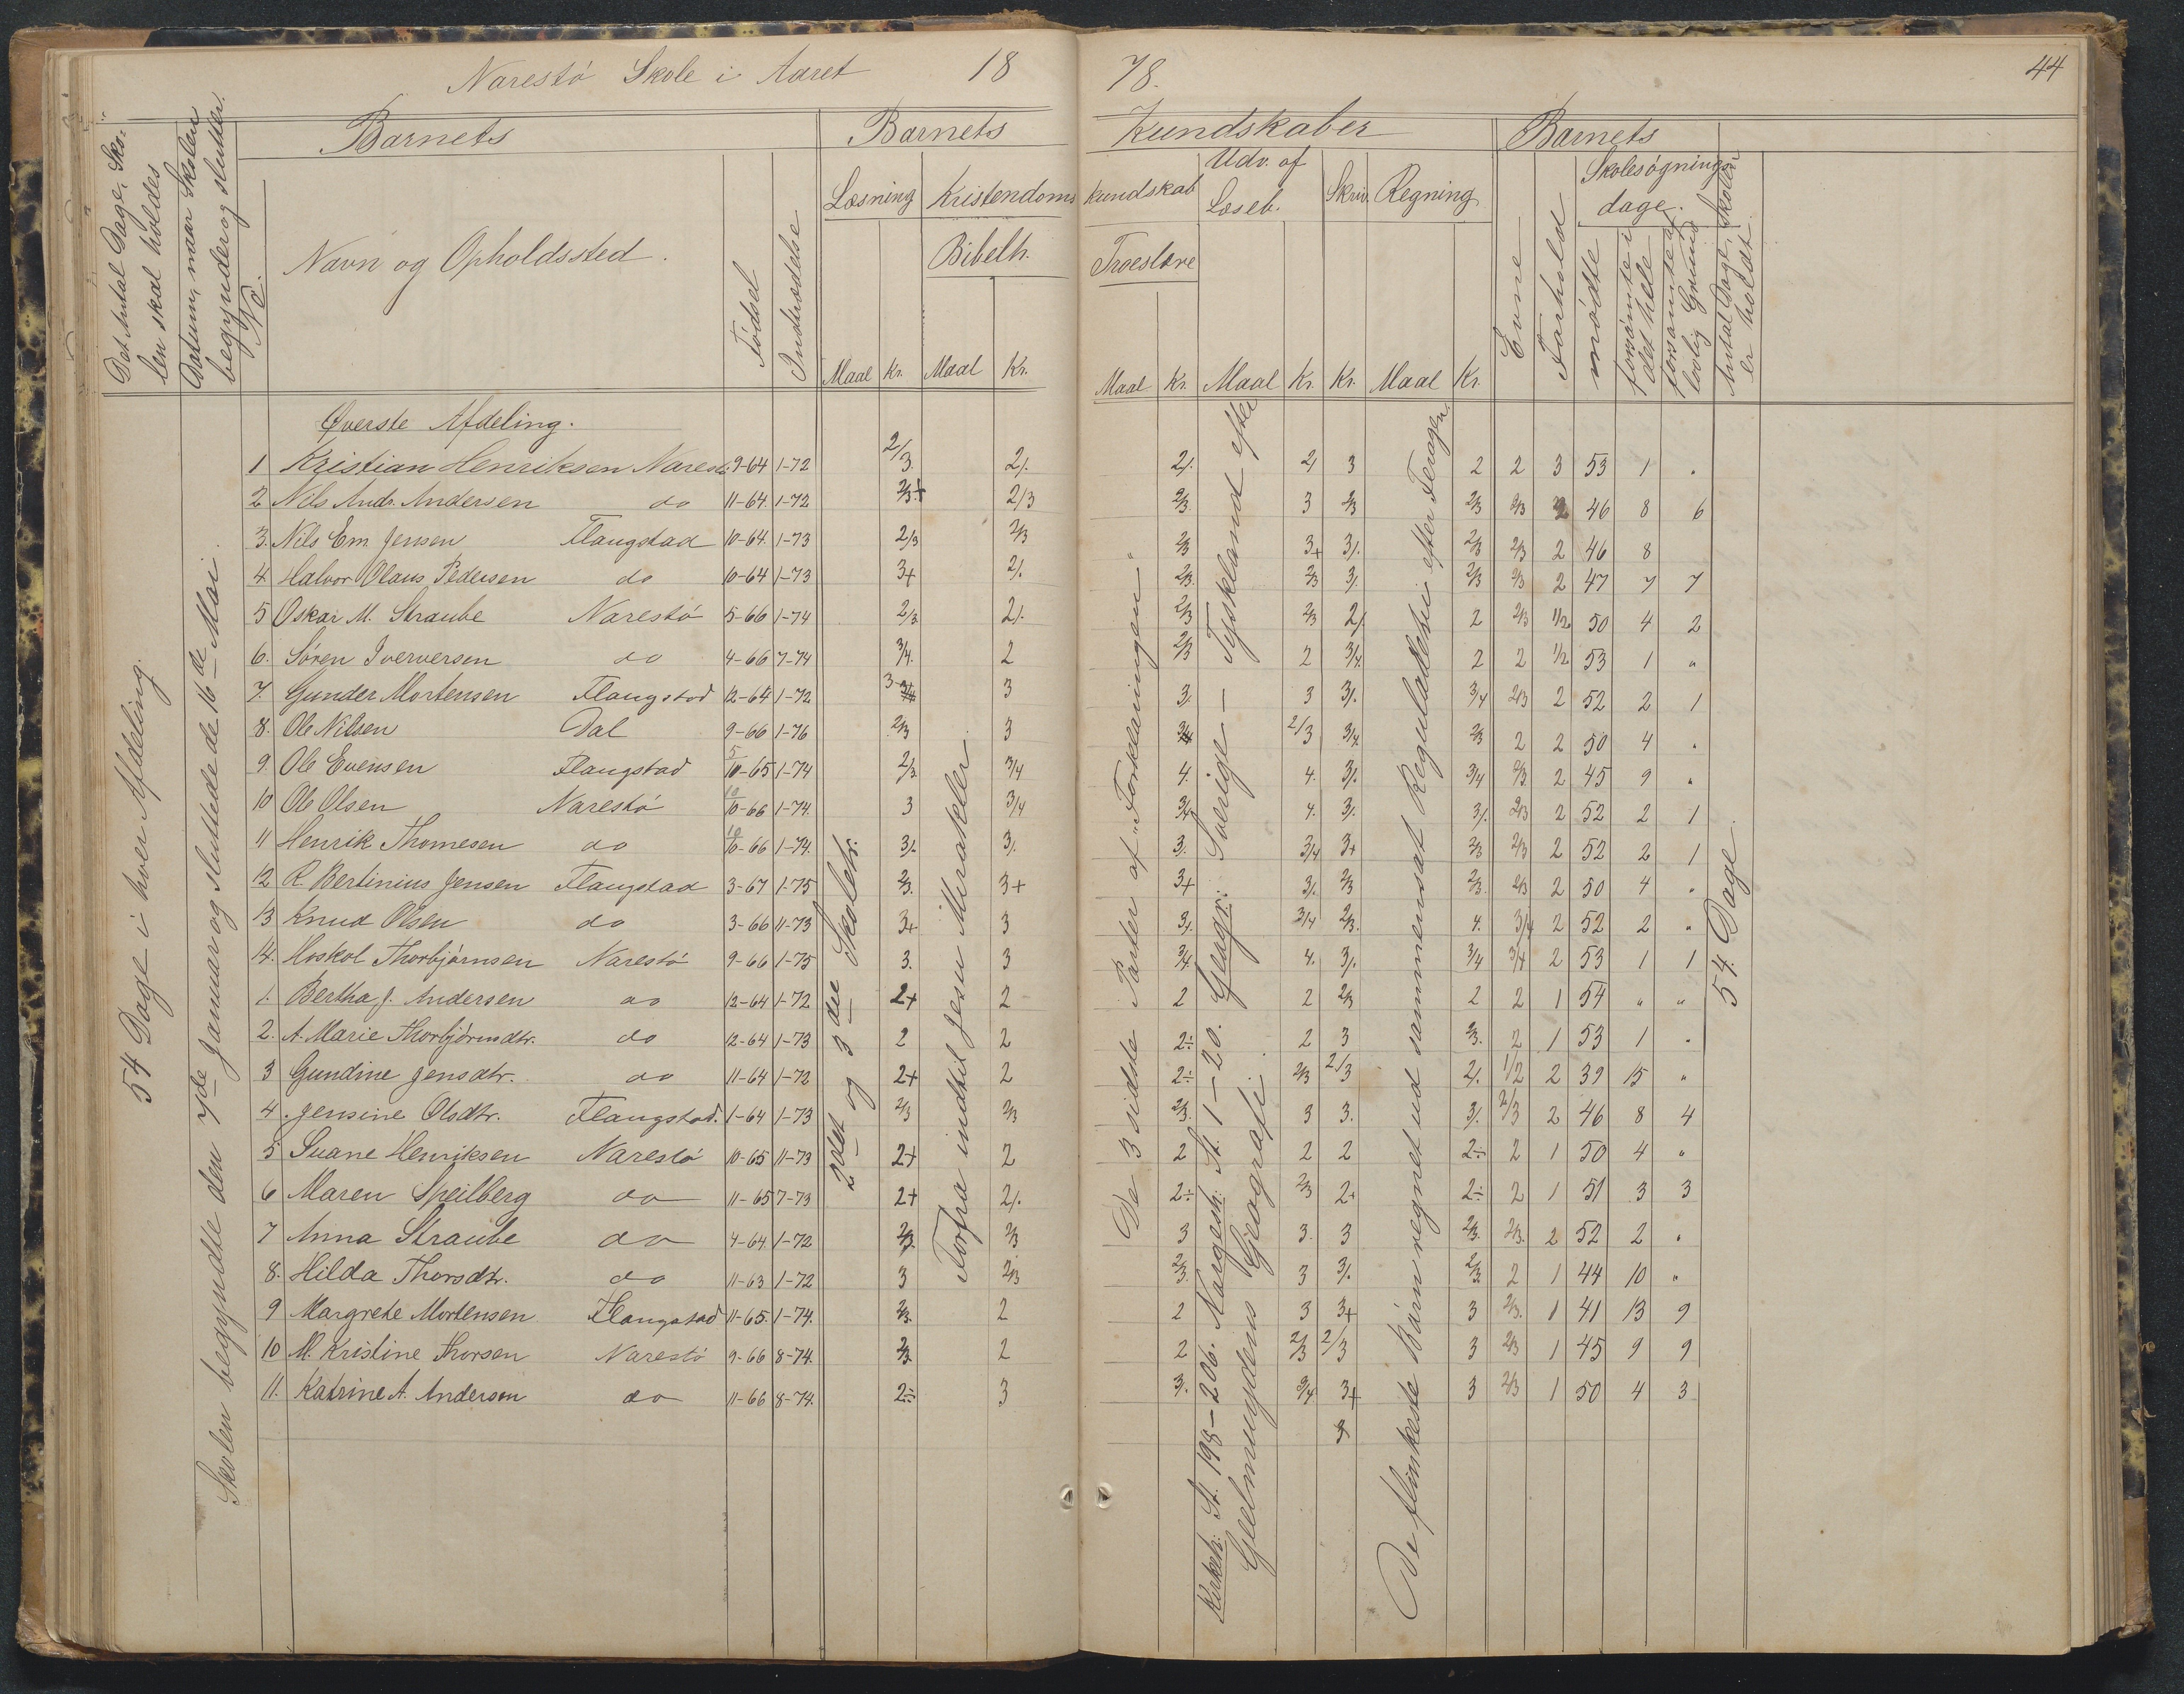 Narestö Skole i Aaret 18 78. 44
Det Antal Dage, Skolen skal holdes
Datum, naar Skolen begynder og slutter.
No.
Barnets
Navn og Opholdssted.
Födsel
Indtrædelse
Barnets Kundskaber
Læsning
Maal Kr.
Kristendoms kundskab
Bibelh.
Maal Kr.
Troeslære
Maal Kr.
Udv. af Læseb.
Maal Kr.
Skriv.
Kr.
Regning
Maal Kr.
Barnets
Evne
Forhold
Skolesøgnings- dage.
mødte
forsømte i det hele
forsømte af lovlig Grund
Antal Dage, Skolen er holdt
Øverste Afdeling.
1 Kristian Henriksen Narestö 9-64 1-72 2/3. 2/. 2/. 2/ 3 2 2 3 53 1 "
2 Nils Andr. Andersen do 11-64. 1-72 2/3+ 2/3 2/3 3 2/3 2/3 2/3 2 46 8 6
3. Nils Em. Jensen Flaugstad 10-64. 1-73 2/3 2/3 2/3 3+ 3/. 2/3 2/3 2 46 8
4. Halvor Olaus Pedersen do 10-64 1-73 3+ 2/. 2/3. 2/3 3/. 2/3 2/3 2 47 7 7
5 Oskar M. Straube Narestö 5-66 1-74 2/3 2/. 2/3 2/3 2/. 2 2/3 1/2 50 4 2
6. Sören Iverversen do 4-66 7-74 3/4. 2 2/3 2 3/4. 2 2 1/2 53 1 "
7. Gunder Mortensen Flaugstad 12-64 1-72 3 3 3/. 3 3/. 3/4 2/3 2 52 2 1
8. Ole Nilsen Dal 9-66 1-76 2/3 3 3/4 2/3 3/4. 2/3 2 2 50 4 "
9. Ole Evensen Flaugstad 5/10-65 1-74 2/3 3/4 4. 4. 3/. 3/4 2/3 2 45 9 "
10 Ole Olsen Narestö 10/10-66 1-74. 3 3/4 3/4 4. 3/. 3/. 2/3 2 52 2 1
11 Henrik Thomesen do 10/10-66 1-74. 3/. 3/. 3. 3/4 3+ 2/3 2/3 2 52 2 1
12 R. Bertinius Jensen Flaugstad 3-67 1-75 2/3. 3+ 3+ 3/. 2/3 2/3. 2/3 2 50 4 "
13 Knud Olsen do 3-66 11-73 3+ 3 3/. 3/4 2/3. 4. 3/4 2 52 2 "
14. Hoskol Thorbjörnsen Narestö 9-66 1-75 3. 3 3/4. 4. 3/. 3/4 3/4 2 53 1 1
1. Bertha J. Andersen do 12-64 1-72 2+ 2 2 2 2/3 2 2 1 54 " "
2. A. Marie Thorbjörnsdtr. do 12-64 1-73 2 2 2÷ 2 3 2/3. 2 1 53 1 "
3 Gundine Jensdtr. do 11-64 1-72 2+ 2 2÷ 2/3 2/3 2/. 1/2 2 39 15 "
4. Jensine Olsdtr. Flaugstad. 1-64 1-73 2/3 2/3 2/3. 3 3. 3/. 2/3 2 46 8 4
5 Suane Henriksen Narestö 10-65 11-73 2+ 2 2 2 2 2÷ 2 1 50 4 "
6 Maren Speilberg do 11-65 7-73 2+ 2/. 2÷ 2/3 2+ 2÷ 2 1 51 3 3
7 Anna Straube do 4-64. 1-72 2/3. 2/3 3 3. 3 2/3. 2/3. 2 52 2 "
8. Hilda Thorsdtr. do 11-63 1-72 3 2/3 2/3. 3 3/. 2/3. 2 1 44 10 "
9 Margrete Mortensen Flaugstad 11-65. 1-74. 2/3. 2 2 3 3+ 3 2/3. 1 41 13 9
10 M. Kristine Thorsen Narestö 9-66 8-74. 2/3. 2 2 2/3 2/3 3 2/3 1 45 9 9
11. Katrine A. Andersen do 11-66 8-74. 2÷ 3 3/. 3/4 3+ 3 2/3 1 50 4 3
54 Dage i hver Afdeling.
Skolen begyndte den 7de Januar og sluttede de 16de Mai.
2det og 3die Skoletr.
Forfra indtil Jesu Mirakler.
De 3 sidste Parter af "Forklaringen"
Kirkeh: St. 198-206. Norgesh: St. 1-20. Geogr: Sverige — Tyskland efter
Geelmuydens Geografi.
De flinkeste Börn regnet ud sammensat Reguladetri efter Feragen.
54 Dage.